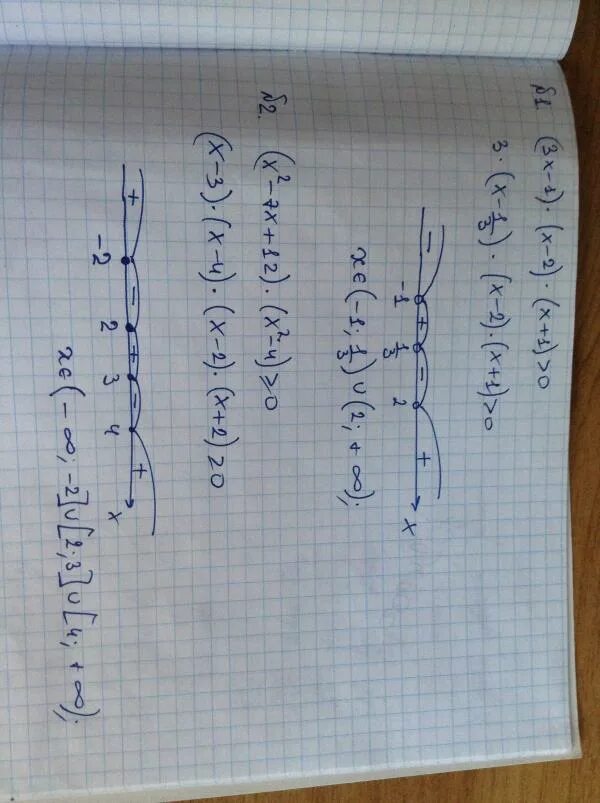 №1. (3x-1)·(x-2)·(x+1)>0
3·(x-1/3)·(x-2)·(x+1)>0
- + - +
-1 1/3 2 x
x∈(-1; 1/3)∪(2; +∞);
№2. (x²-7x+12)·(x²-4)≥0
(x-3)·(x-4)·(x-2)·(x+2)≥0
+ - + - +
-2 2 3 4 x
x∈(-∞; -2]∪[2; 3]∪[4; +∞);